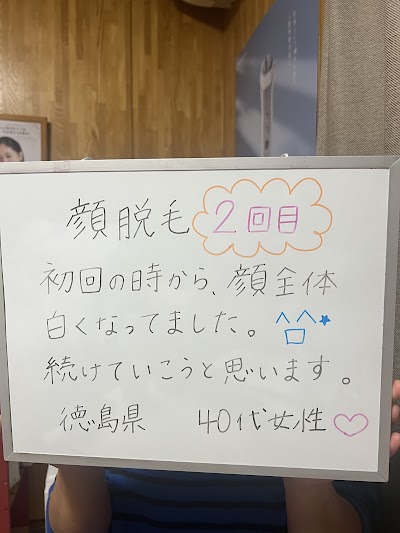 顔脱毛 2回目
初回の時から、顔全体
白くなってました。
続けていこうと思います。
徳島県 40代女性♡